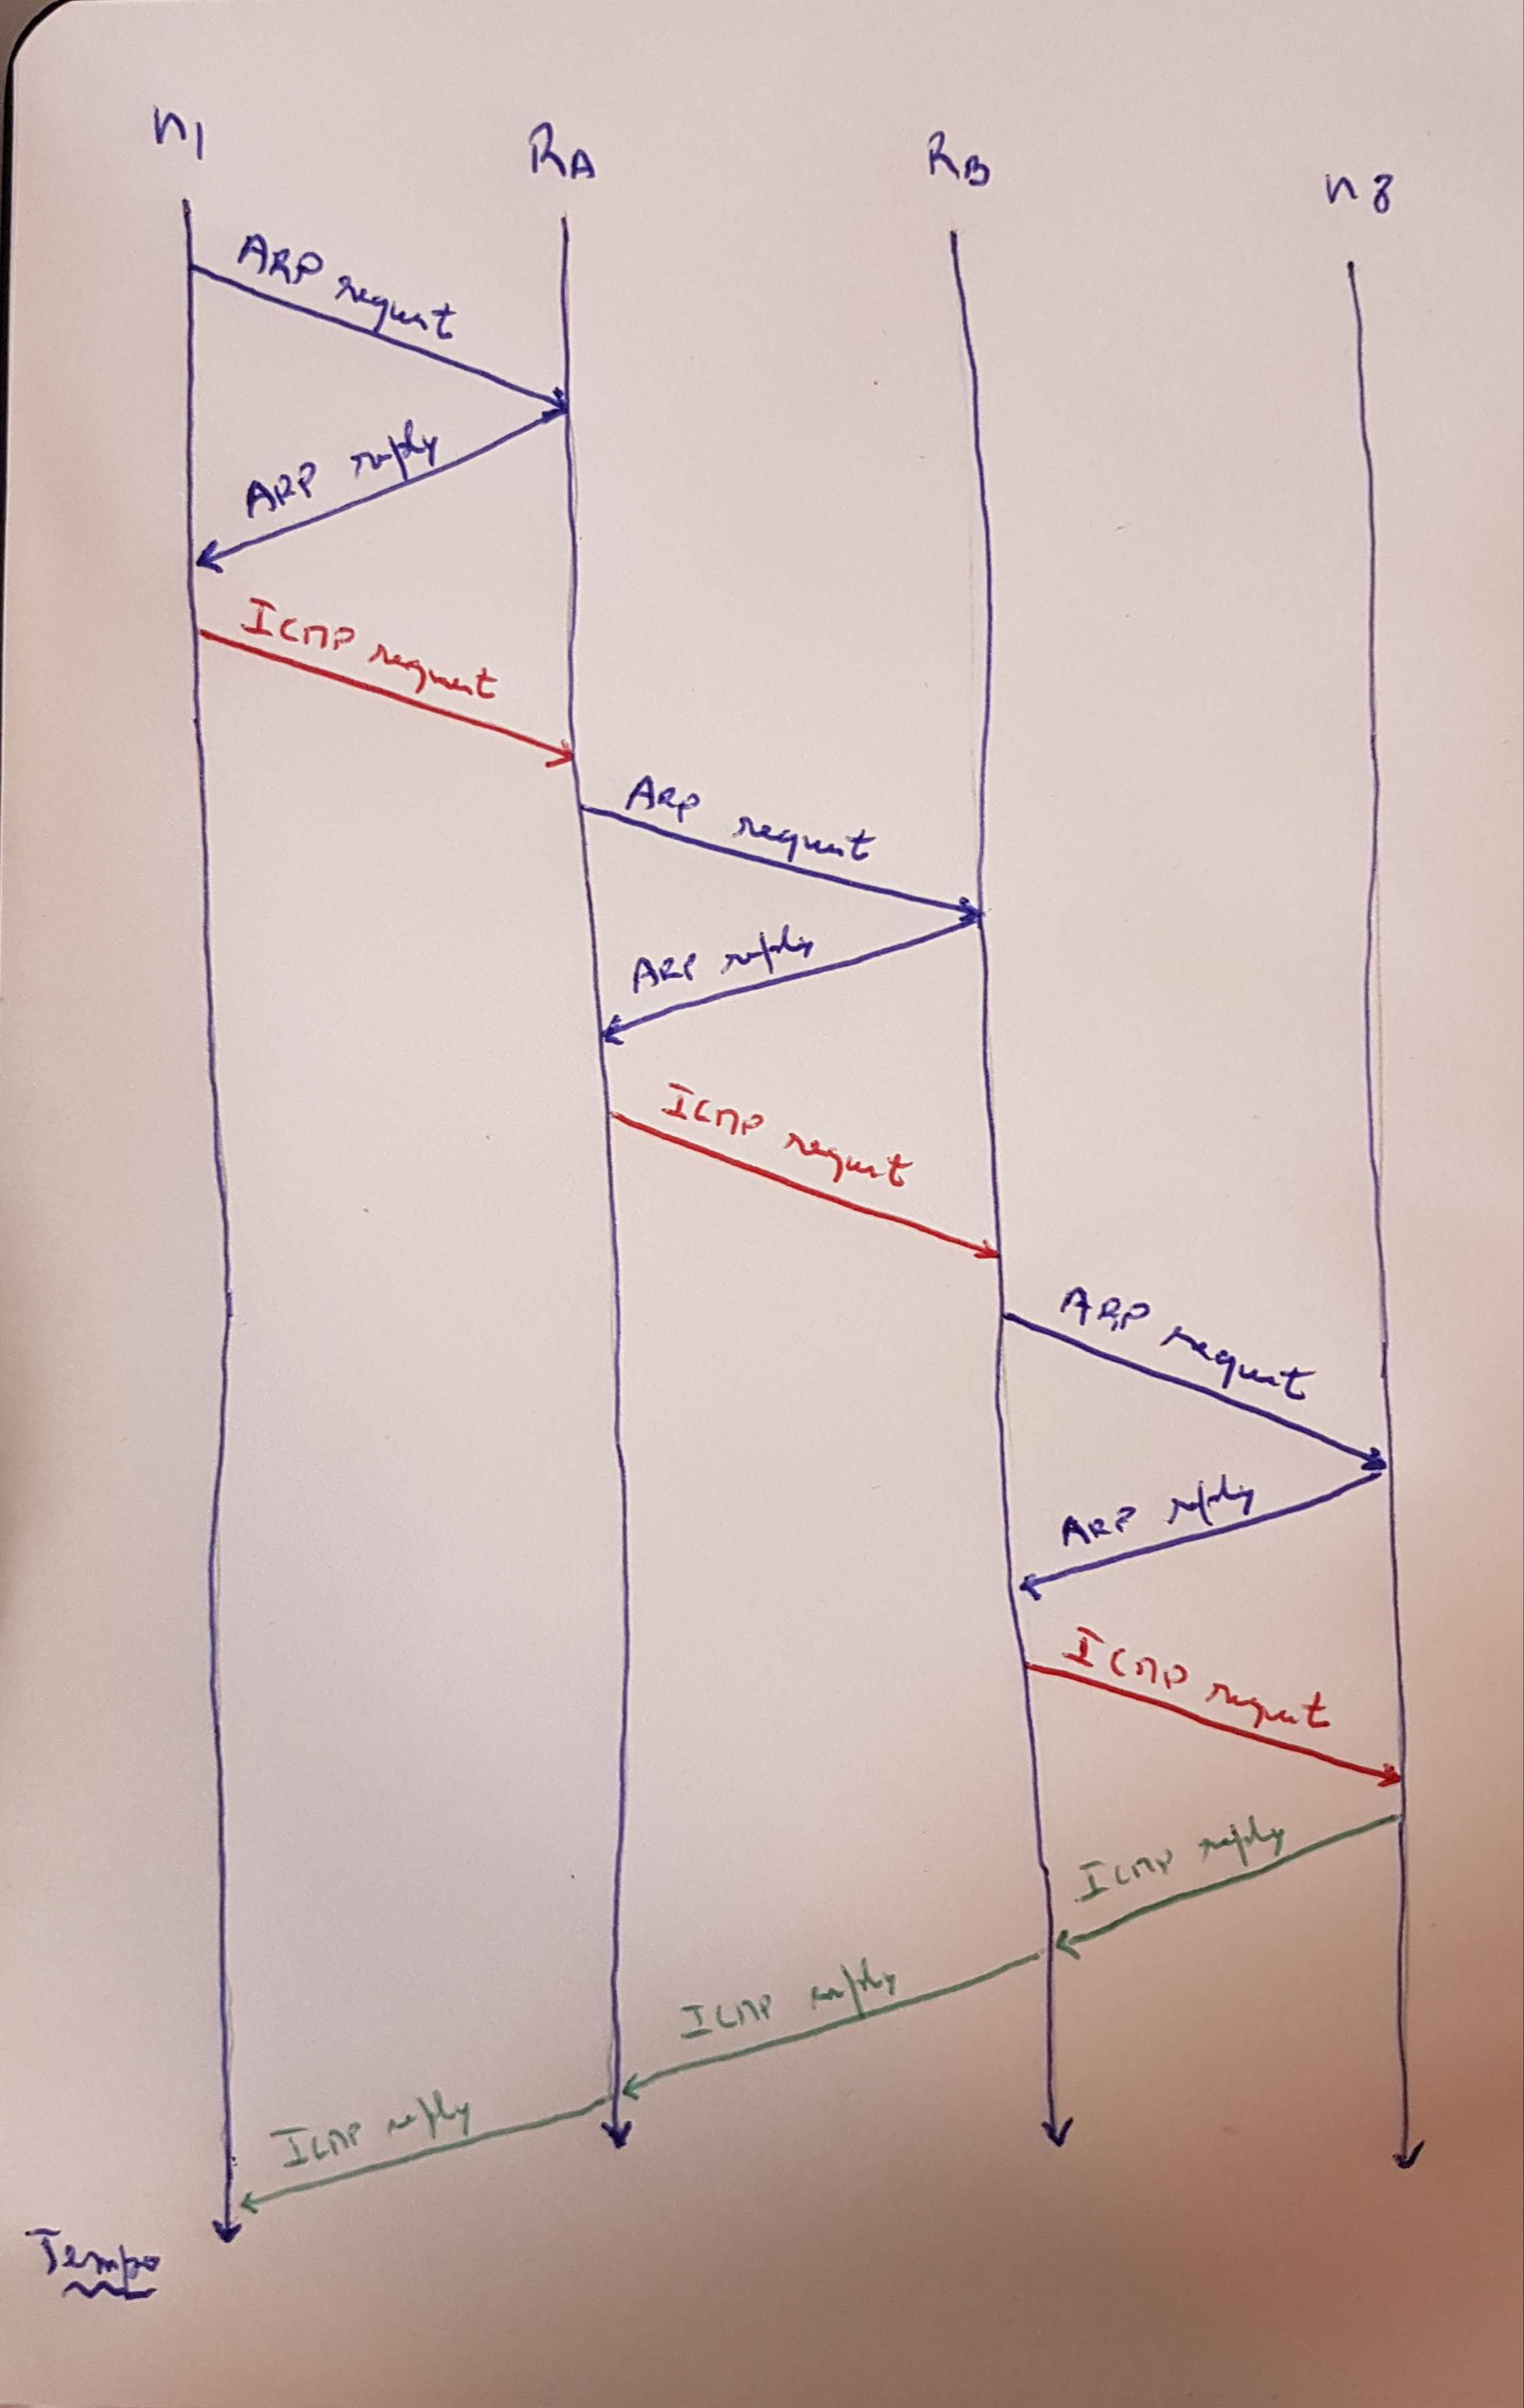 n1
RA
RB
n8
ARP request
ARP reply
ICMP request
ARP request
ARP reply
ICMP request
ARP request
ARP reply
ICMP request
ICMP reply
ICMP reply
ICMP reply
Tempo